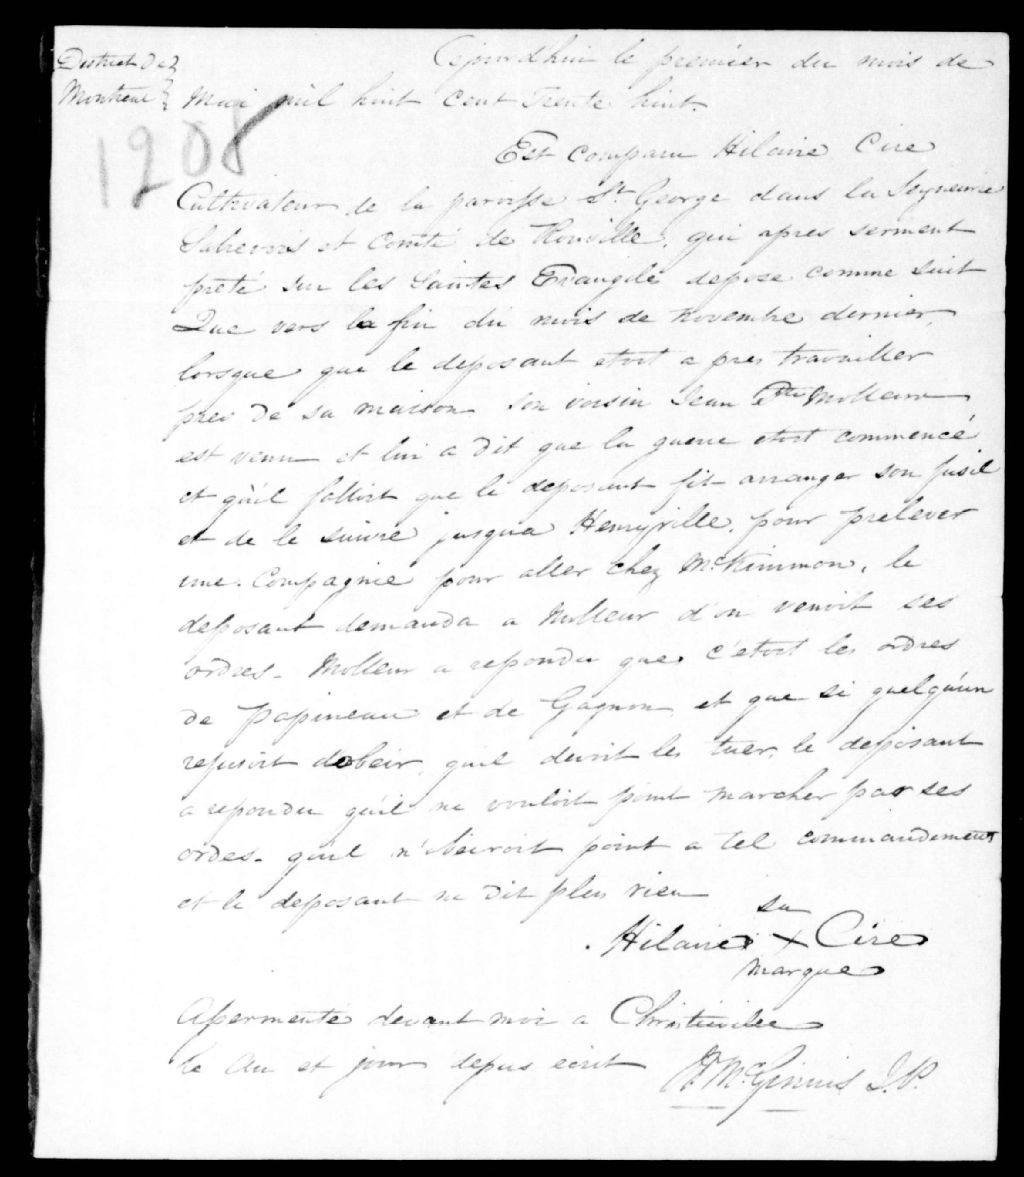 District De
Montreal
Cejourdhui le premier du mois de
Mai mil huit Cent Trente huit.
1208
Est comparu Hilaire Cire
Cultivateur de la paroisse St George dans la Seyneurie
Sabrevois et Comté de Rouville, qui apres serment
preté sur les Saintes Evangile depose comme suit
Que vers la fin du mois de Novembre dernier,
lorsque que le deposant etoit a pres travailler
pres de sa maison son voisin Jean Bte Molleur
est venu et lui a dit que la guerre etoit commencé
et qu'il falloit que le deposant fit arranger son fusil
et de le suivre jusqua Henryville, pour prelever
une Compagnie pour aller chez McKimmon, le
deposant demanda a Molleur d'ou venoit ses
ordres - Molleur a repondu que c'etoit les ordres
de Papineau et de Gagnon et que si quelqu'un
refusoit dobeir, quil devoit les tuer, le deposant
a repondu qu'il ne vouloit point marcher par ses
ordes - quil n'obeiroit point a tel commandement
et le deposant ne dit plus rien
sa
Hilaire X Cire
marque
Assermenté devant moi a Christieville
le an et jour depus ecrit
W McGinnis J.P.